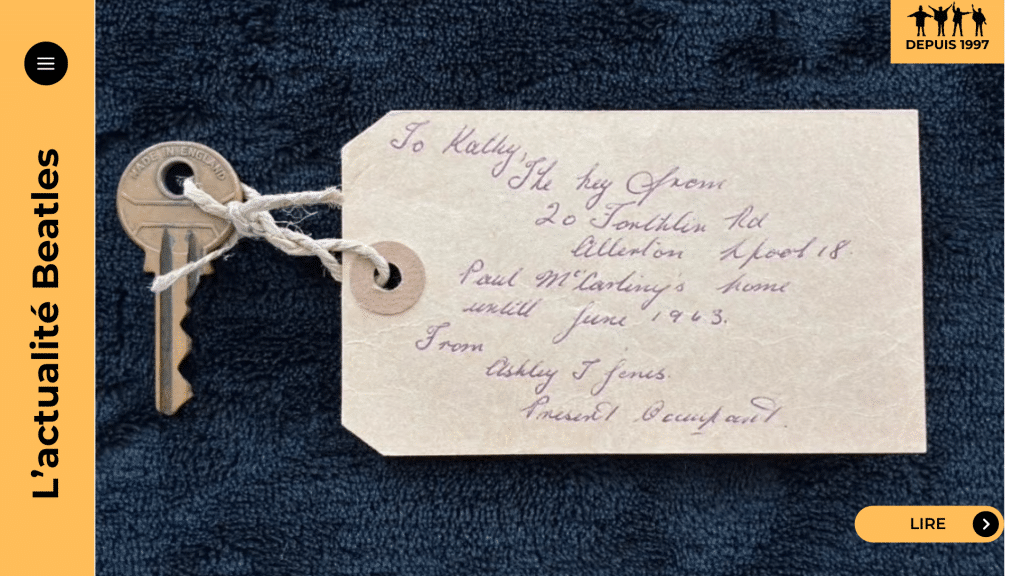 L'actualité Beatles
DEPUIS 1997
MADE IN ENGLAND
To Kathy,
The key from
20 Forthlin Rd
Allerton Lpool 18.
Paul McCartney's home
untill June 1963.
From
Ashley T Jones.
Present Occupant.
LIRE